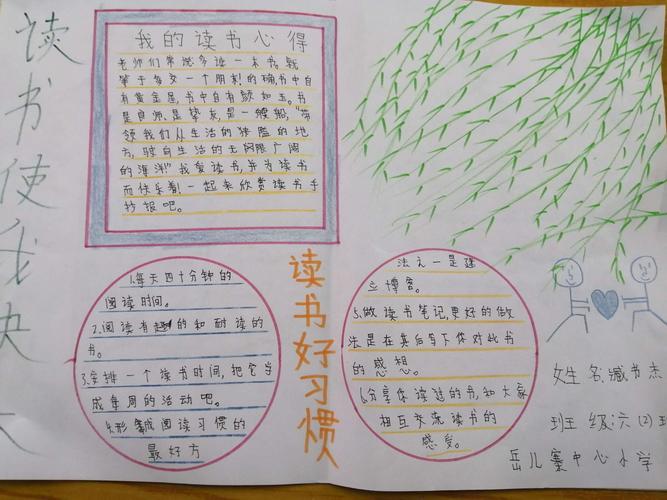 读书使我快
我的读书心得
老师们常说多读一本书,就
等于多交一个朋友!的确,书中自
有黄金屋,书中自有颜如玉。书
是良师,是挚友,是一艘船,"带
领我们从生活的狭隘的地
方,驶向生活的无限广阔
的海洋!"我爱读书,并为读书
而快乐着!一起来欣赏读书手
抄报吧。
1.每天四十分钟的
阅读时间。
2.阅读有趣的和耐读的
书。
3.安排一个读书时间,把它当
成每周的活动吧。
4.形成阅读习惯的
最好方
读书好习惯
法之一是建
立博客。
5.做读书笔记,更好的做
法是在其后写下你对此书
的感想。
6.分享你读过的书,和大家
相互交流读书的
感受。
姓名:臧书杰
班级:六(2)班
岳儿寨中心小学